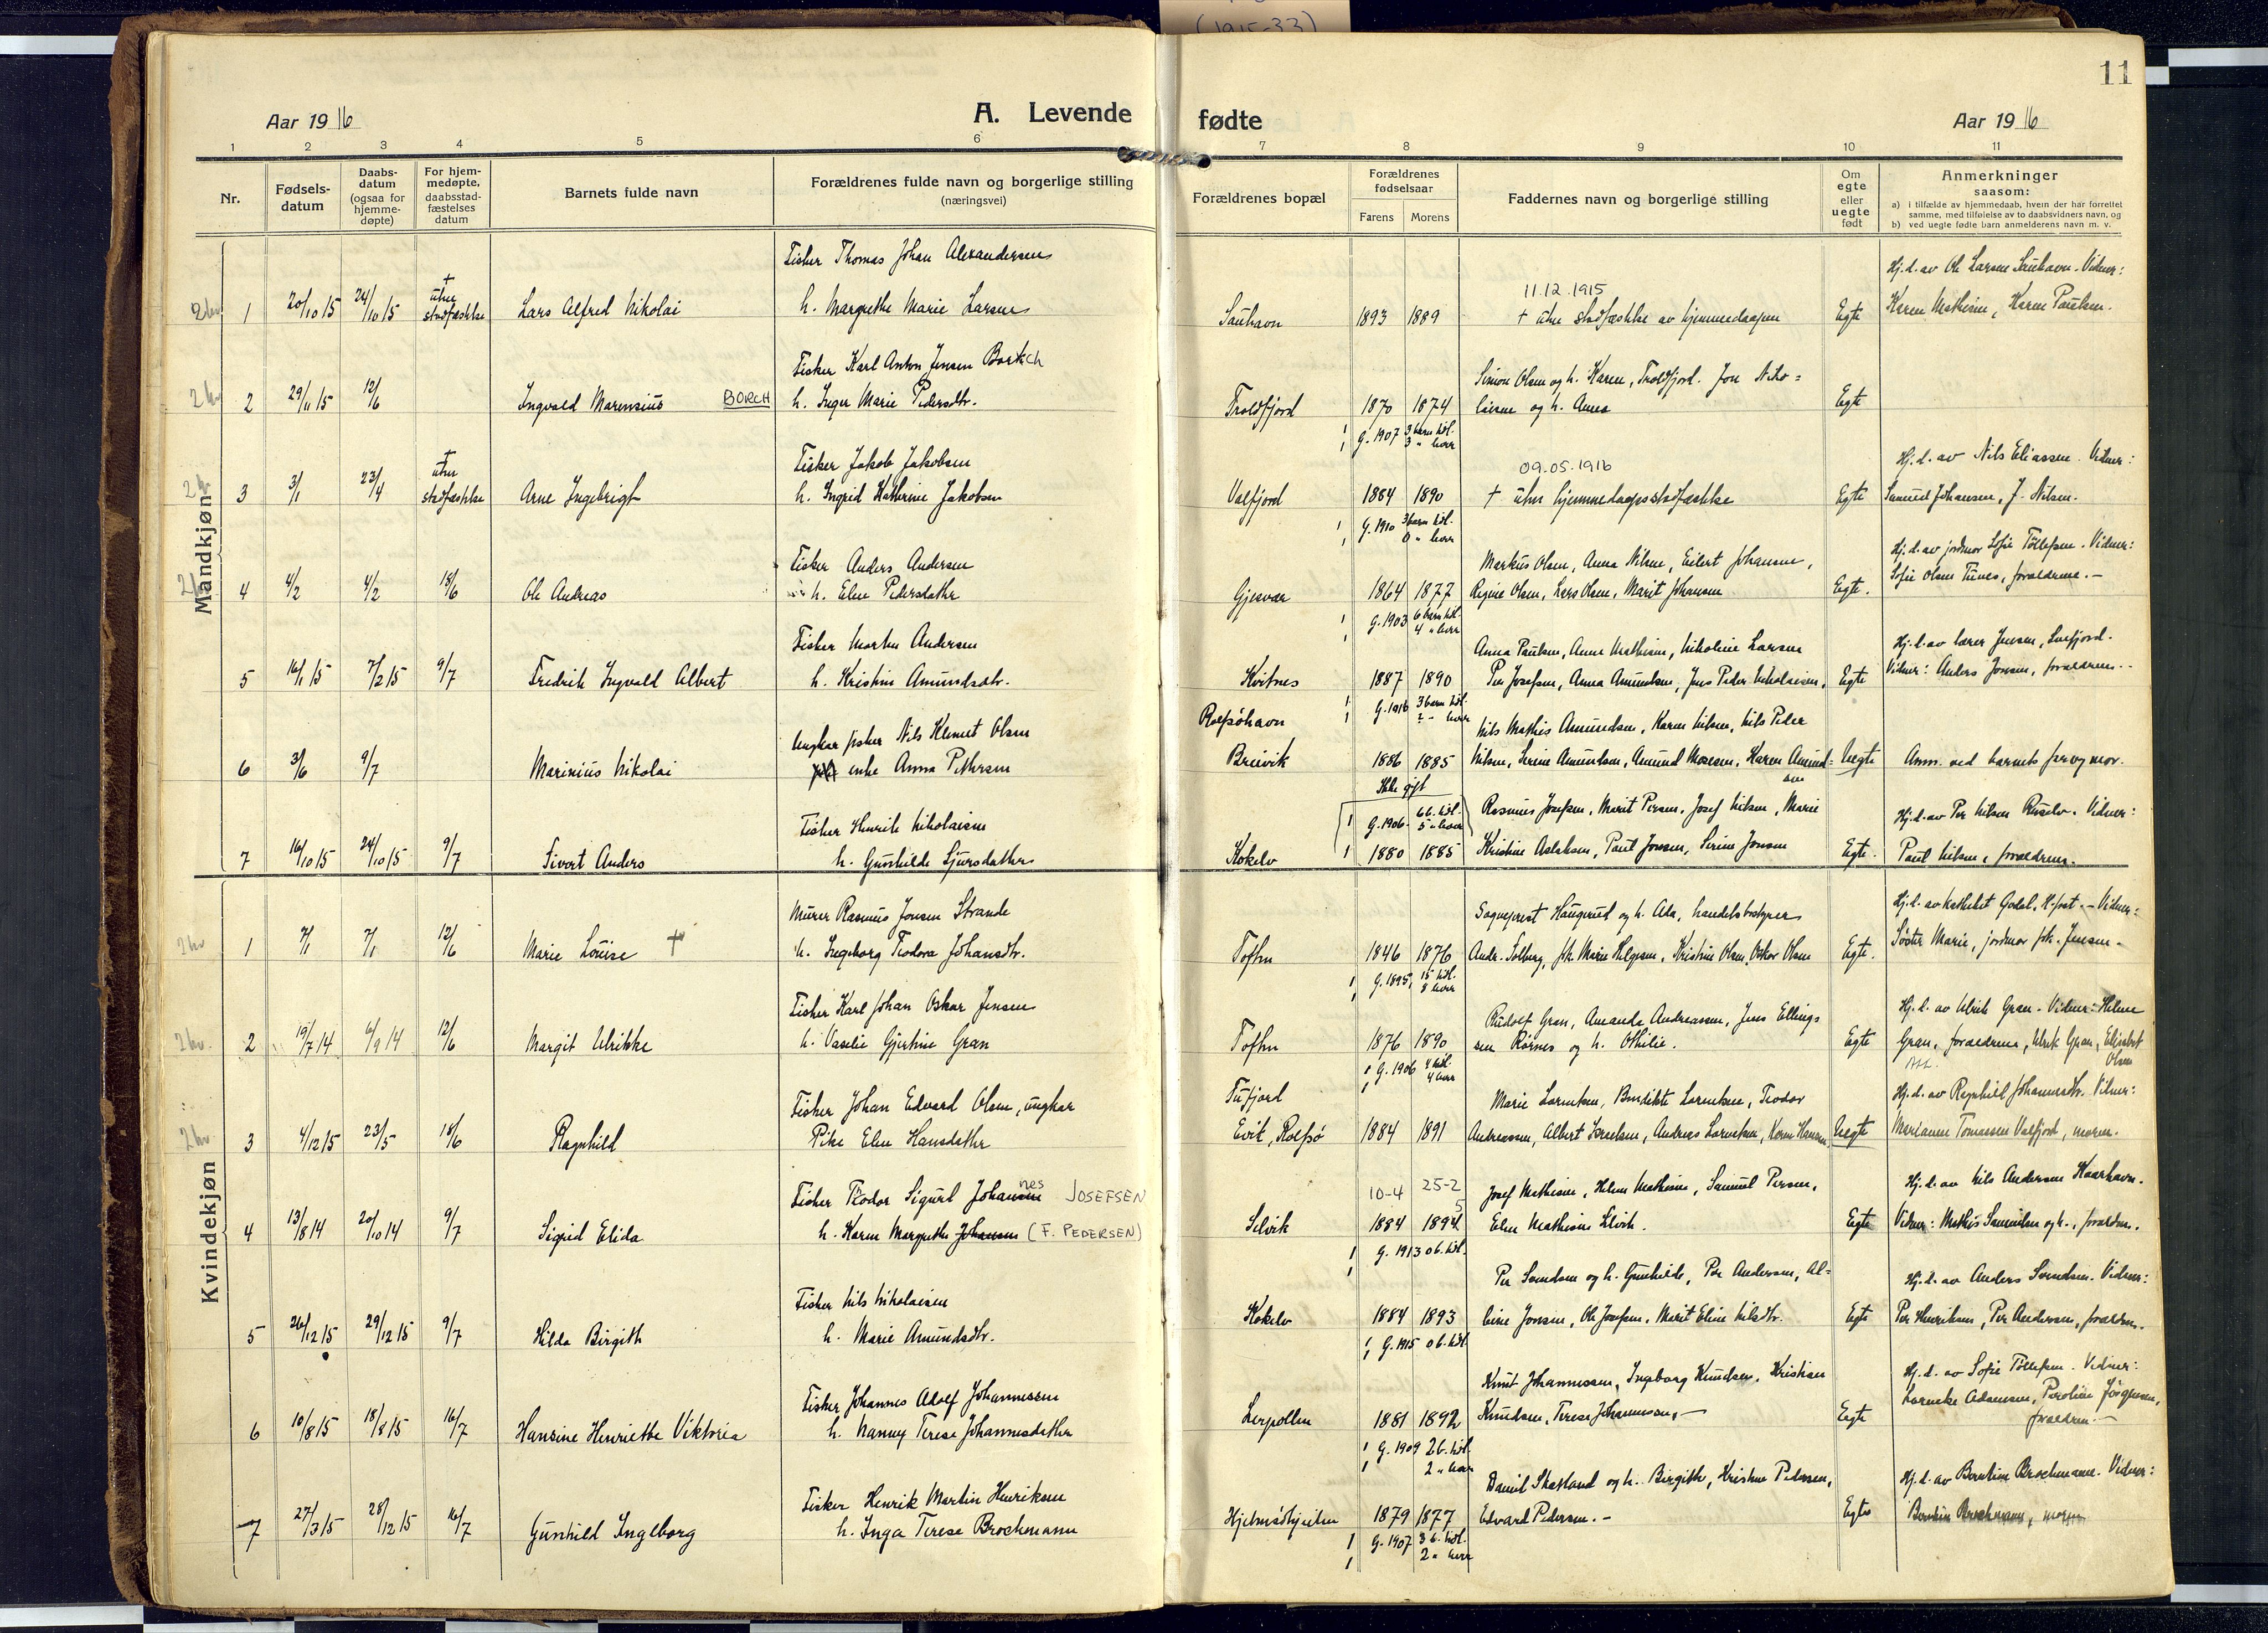 (1915-33)
11
Aar 1916
A. Levende
fødte
Aar 1916
1 2 3 4 5 6 7 8 9 10 11
Nr.
Fødsels-
datum
Daabs-
datum
(ogsaa for
hjemme-
døpte)
For hjem-
medøpte,
daabsstad-
fæstelses
datum
Barnets fulde navn
Forældrenes fulde navn og borgerlige stilling
(næringsvei)
Forældrenes bopæl
Forældrenes
fødselsaar
Farens Morens
Faddernes navn og borgerlige stilling
Om
egte
eller
uegte
født
Anmerkninger
saasom:
a) i tilfælde av hjemmedaab, hvem der har forrettet
samme, med tilføielse av to daabsvidners navn, og
b) ved uegte fødte barn anmelderens navn m. v.
Mandkjøn
Fisker Thomas Johan Alexandersen
Hj.d. av Ole Larsen Sauhavn. Vidner:
11.12.1915
1 20/10 15 24/10 15 † uten stadfæstelse Lars Alfred Nikolai h. Margrethe Marie Larsen Sauhavn 1893 1889 † uten stadfæstelse av hjemmedaapen Egte Karen Mathisen, Karen Paulsen.
Fisker Karl Anton Jensen Bortsch
Simon Olsen og h. Karen, Troldfjord. Jon Niko=
2 29/11 15 12/6 Ingvald Marensius BORCH h. Inger Marie Pedersdtr. Troldfjord 1870 1874 laisen og h. Anna Egte
G. 1907 3 barn tidl.
3 " lever
Fisker Jakob Jakobsen
09.05.1916
Hj.d. av Nils Eliassen. Vidner:
3 3/1 23/4 † uten stadfæstelse Arne Ingebrigt h. Ingrid Kathrine Jakobsen Valfjord 1884 1890 † uten hjemmedaapsstadfæstelse Egte Samuel Johansen, J. Nilsen.
G. 1910 3 barn tidl.
0 " lever
Fisker Anders Andersen
Markus Olsen, Anna Nilsen, Eilert Johansen,
Hj.d. av jordmor Sofie Tollefsen. Vidner:
4 4/2 4/2 18/6 Ole Andreas h. Elen Pedersdatter Gjesvær 1864 1877 Regine Olsen, Lars Olsen, Marit Johansen Egte. Sofie Olsen Tunes, forældrene.-
G. 1903 6 barn tidl.
4 " lever
Fisker Morten Andersen
Anna Paulsen, Anne Mathisen, Nikoline Larsen
Hj.d. av lærer Jensen, Snefjord.
5 16/1 15 7/2 15 9/7 Fredrik Ingvald Albert h. Kristine Amundsdtr. Kvitnes 1887 1890 Per Josefsen, Anna Amundsen, Jens Peder Nikolaisen, Egte Vidner: Anders Jonsen, forældrene.
G. 1916 3 barn tidl.
2 " lever
Ungkar fisker Nils Klemet Olsen
Rolfsöhavn
Nils Mathis Amundsen, Karen Nilsen, Nils Peder
6 3/6 9/7 Marinius Nikolai enke Anna Pettersen Breivik 1886 1885 Nilsen, Serine Amundsen, Amund Mosesen, Karen Amund= Uegte Anm. ved barnets far og mor.
sen
Ikke gift
Fisker Henrik Nikolaisen
G. 1906. 6 b. tidl.
5 " lever
Rasmus Josefsen, Marit Persen, Josef Nilsen, Marie
Hj.d. av Per Nilsen Russelv. Vidner:
7 16/10 15 24/10 15 9/7 Sivert Anders h. Gunhilde Sjursdatter Kokelv 1880 1885 Kristine Aslaksen, Paul Jonsen, Serine Jonsen Egte. Paul Nilsen, forældrene.
Kvindekjøn
Murer Rasmus Jonsen Strande
Sogneprest Haugerud og h. Ada, handelsbestyrer
Hj.d. av kateket Godal, H.fest. - Vidner:
1 7/1 7/1 12/6 Marie Louise † h. Ingeborg Teodora Johansdtr. Toften 1846 1876 Andr. Solberg, frk. Marie Helgesen, Kristine Olsen, Oskar Olsen Egte. Söster Marie, jordmor frk. Jensen.
G. 1895, 15 tidl.
8 lever
Fisker Karl Johan Oskar Jensen
Rudolf Gran, Amanda Andreassen, Jens Ellings
Hj.d. av Ulrik Gran. Vidner: Helene
2 19/7 14 6/9 14 12/6 Margit Ulrikke h. Vaselie Gjertine Gran Toften 1876 1890 sen Rörnes og h. Othilie. Egte Gran, forældrene, Ulrik Gran, Elisabet
Olsen
G. 1906 4 tidl.
4 lever
Fisker Johan Edvard Olsen, ungkar
Tufjord
Marie Lorentsen, Benedikte Lorentsen, Teodor
Hj.d. av Ragnhild Johannesdtr. Vidner:
3 4/12 15 23/5 18/6 Ragnhild Pike Elen Hansdatter Evik, Rolfsö 1884 1891 Andreassen, Albert Lorentsen, Andreas Lorentsen, Karen Hansen Uegte Marianne Tomassen Valfjord, moren.
Fisker Teodor Sigurd Johannes JOSEFSEN
10-4 25-2
Josef Mathisen, Helene Mathisen, Samuel Persen,
Hj.d. av Nils Andersen Kaarhavn.
4 13/8 14 20/10 14 9/7 Sigrid Elida h. Karen Margrethe Johansen (F. PEDERSEN) Selvik 1884 1894 5 Elen Mathisen Selvik. Egte Vidner: Mathis Samuelsen og h., forældrene.
G. 1913 0 b. tidl.
Fisker Nils Nikolaisen
Per Svendsen og h. Gunhilde, Per Andersen, Al=
Hj.d. av Anders Svendsen. Vidner:
5 26/12 15 29/12 15 9/7 Hilda Birgith h. Marie Amundsdtr. Kokelv 1884 1893 bine Jonsen, Ole Josefsen, Marit Eline Nilsdtr. Egte Per Henriksen, Per Andersen, forældrene.
G. 1915 0 b. tidl.
Fisker Johannes Adolf Johannessen
Knut Johannessen, Ingeborg Knudsen, Kristian
Hj.d. av Sofie Tollefsen. Vidner:
6 10/8 15 18/8 15 16/7 Hansine Henriette Viktoria h. Nanny Terese Johannesdatter Lerpollen 1881 1892 Knudsen, Terese Johannesen,- Egte Lorentse Adamsen, Peroline Jörgensen,
forældrene.-
G. 1909 2 b. tidl.
2 " lever
Fisker Henrik Martin Henriksen
Daniel Skarland og h. Birgithe, Kristine Pedersen,
Hj.d. av Berntine Brochmann. Vidner:
7 27/3 15 28/12 15 16/7 Gunhild Ingeborg h. Inga Terese Brochmann Hjelmsöhjelen 1879 1877 Edvard Pedersen.- Egte Berntine Brochmann, moren
G. 1907 3 b. tidl.
2 " lever